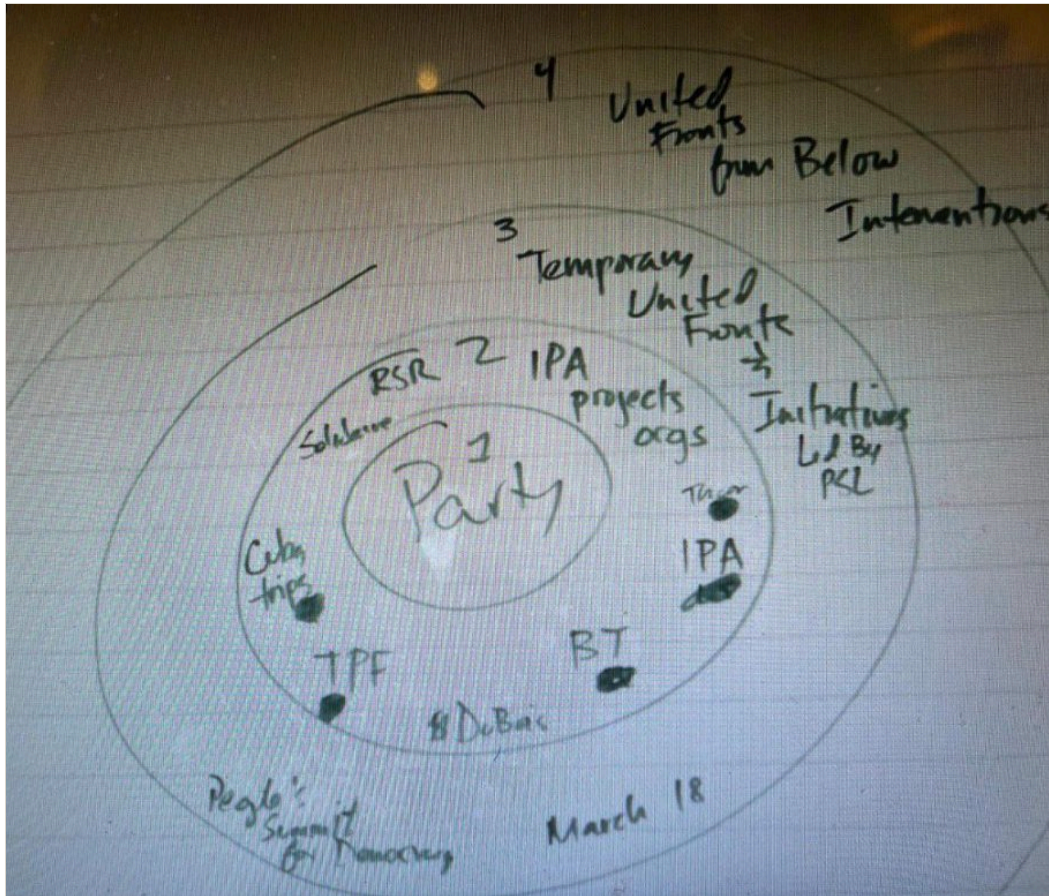 4
United
Fronts
from Below
Interventions
3
Temporary
United
Fronts
&
Initiatives
Led By
PSL
2
RSR
IPA
projects
orgs
1
Party
IPA
Cuba
trips
BT
TPF
DuBois
People's
Summit
for Democracy
March 18